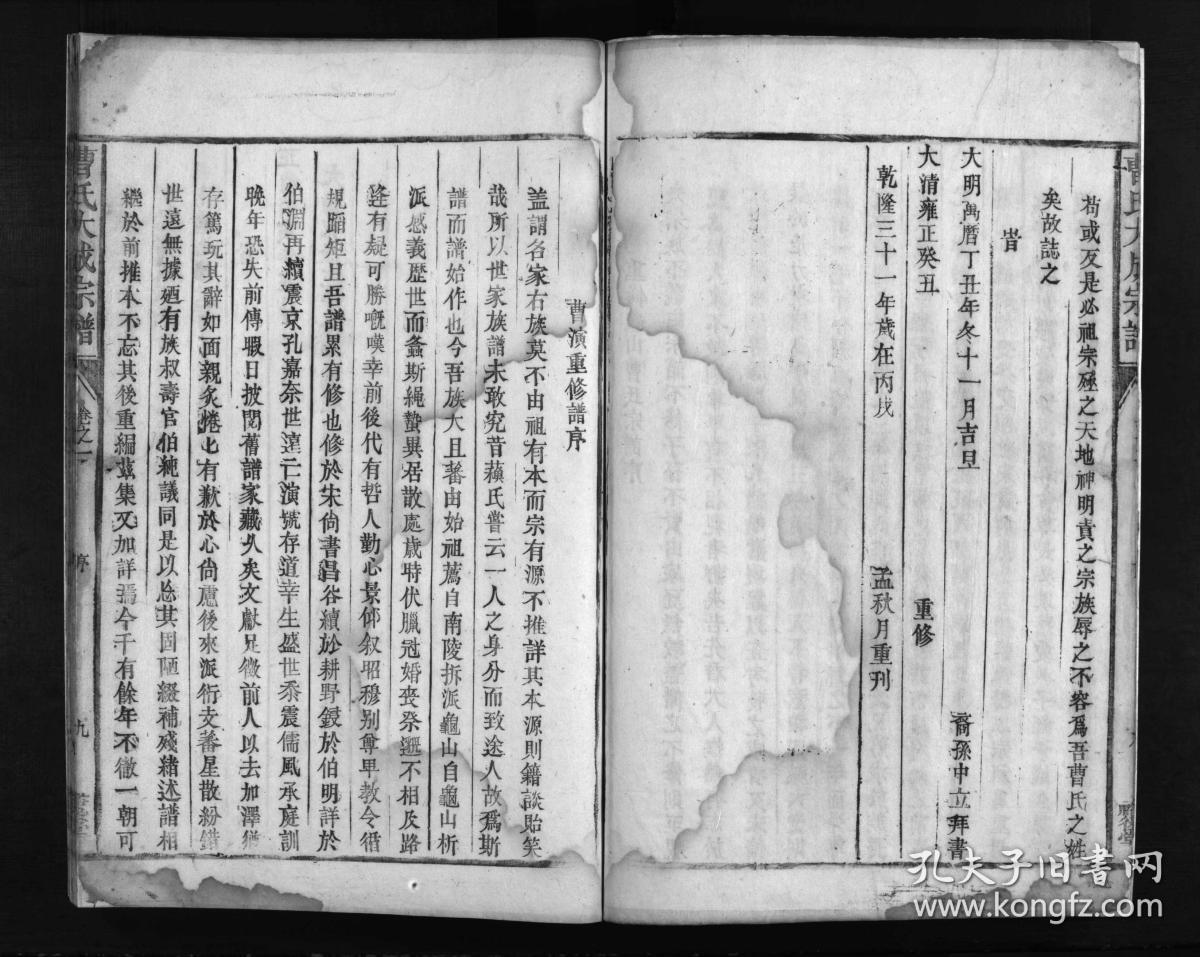 苟或反是必祖宗殛之天地神明責之宗族辱之不容爲吾曹氏之姓
矣故誌之
旹
大明萬曆丁丑年冬十一月吉旦
裔孫中立拜書
大清雍正癸丑
重修
乾隆三十一年歲在丙戌
孟秋月重刊
曹演重修譜序
盖謂名家右族莫不由祖有本而宗有源不推詳其本源則籍談貽笑
哉所以世家族譜未敢究昔蘓氏嘗云一人之身分而致途人故爲斯
譜而譜始作也今吾族大且蕃由始祖薦自南陵拆派龜山自龜山析
派感義歷世而螽斯繩蟄異居散處歲時伏臘冠婚丧祭邈不相及路
逄有疑可勝嘅嘆幸前後代有哲人勤心景仰叙昭穆别尊卑教令循
規蹈矩且吾譜累有修也修於宋尙書昌谷續於耕野鋟於伯明詳於
伯淵再續震京孔嘉奈世遠亡演號存道幸生盛世忝震儒風承庭訓
晚年恐失前傳暇日披閱舊譜家藏久矣文獻足徵前人以去加澤猶
存篤玩其辭如面親炙捲上有歉於心尙慮後來派衍支蕃星散紛錯
世遠無據廼有族叔壽官伯純議同是以忩其固陋綴補殘緒述譜相
繼於前推本不忘其後重編茲集又加詳焉今千有餘年不徹一朝可
曹氏大成宗譜
卷之一
序
九
曹氏大成宗譜
孔夫子旧书网
www.kongfz.com